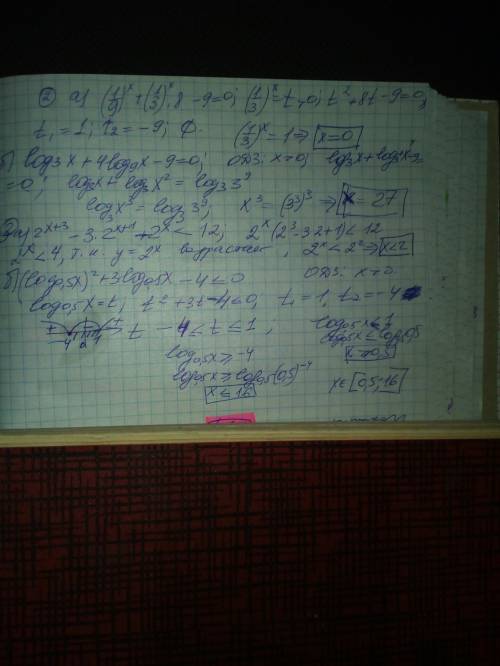 ② а) (1/9)^x + (1/3)^x · 8 - 9 = 0; (1/3)^x = t, t² + 8t - 9 = 0,
t₁ = 1; t₂ = -9; ∅. (1/3)^x = 1 ⇒ x = 0
б) log₃x + 4log₉x - 9 = 0; ОДЗ: x > 0; log₃x + log₃x² - 9
= 0; log₃x + log₃x² = log₃3⁹
log₃x³ = log₃3⁹; x³ = (3³)³ ⇒ x = 27
а) 2^(x+3) - 3·2^(x+1) + 2^x < 12; 2^x(2³ - 3·2 + 1) < 12
2^x < 4, т.к. y = 2^x возрастает, 2^x < 2² ⇒ x < 2
б) (log₀,₅x)² + 3log₀,₅x - 4 ≤ 0 ОДЗ: x > 0
log₀,₅x = t; t² + 3t - 4 ≤ 0, t₁ = 1, t₂ = -4
+ - + t -4 ≤ t ≤ 1; log₀,₅x ≤ 1
-4 1 log₀,₅x ≤ log₀,₅0,5
log₀,₅x ≥ -4 x ≥ 0,5
log₀,₅x ≥ log₀,₅(0,5)⁻⁴
x ≤ 16 x∈[0,5; 16]